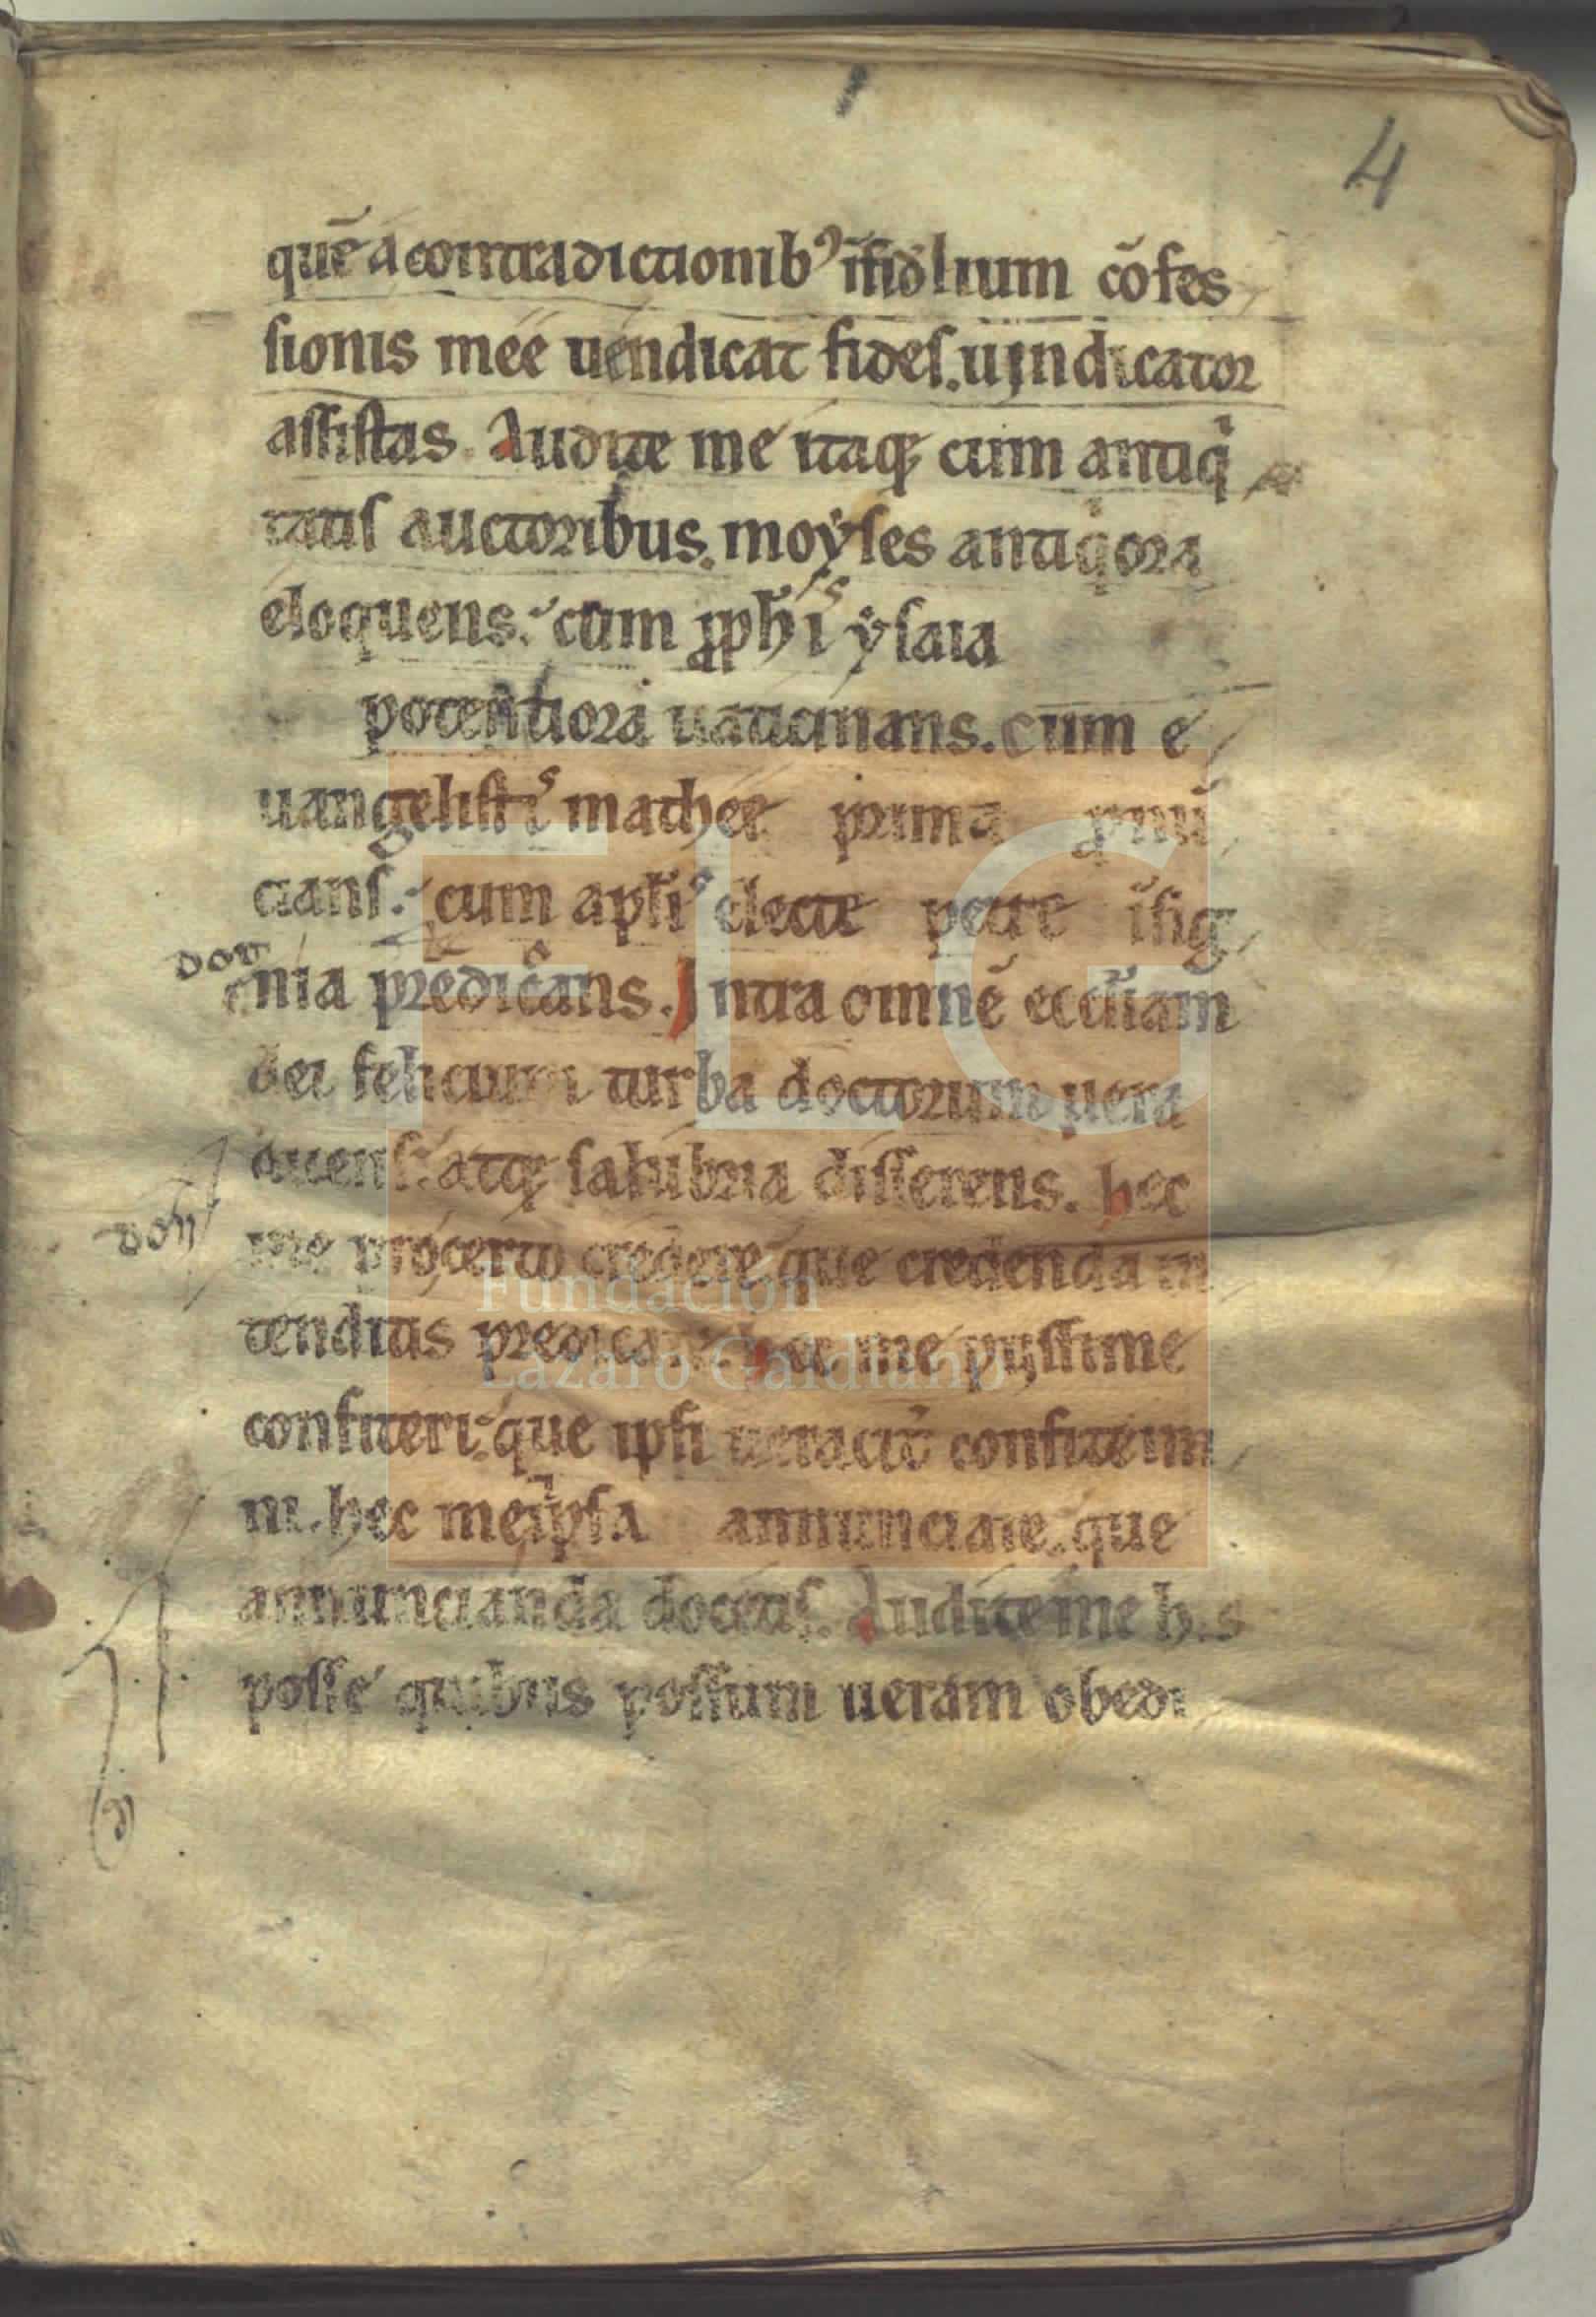 4
quē a contradictionibꝰ īfidelium cōfes
sionis mee uendicat fides. uindicator
assistas. Audite me itaqꝫ cum antiqi
tatis auctoribus. moẏses antiqiora
eloquens. cum ꝓphis ẏsaia
potentiora uaticinans. cum e
uangelistis mathee prima ꝓnū
cians. cum aplis electe petre isig
nia predicans. Intra omnē eccliam
dei felicium turba doctorum uera
atqꝫ salubria disserens. hec
me procerto credere que credenda in
tenditis predicare. hec me pijssime
confiteri. que ipsi ueracit confitemi
ni. hec me ipsa annunciare. que
annuncianda docetis. Audite me his
posse quibus possum ueram obedi
FLG
Fundación
Lázaro Galdiano